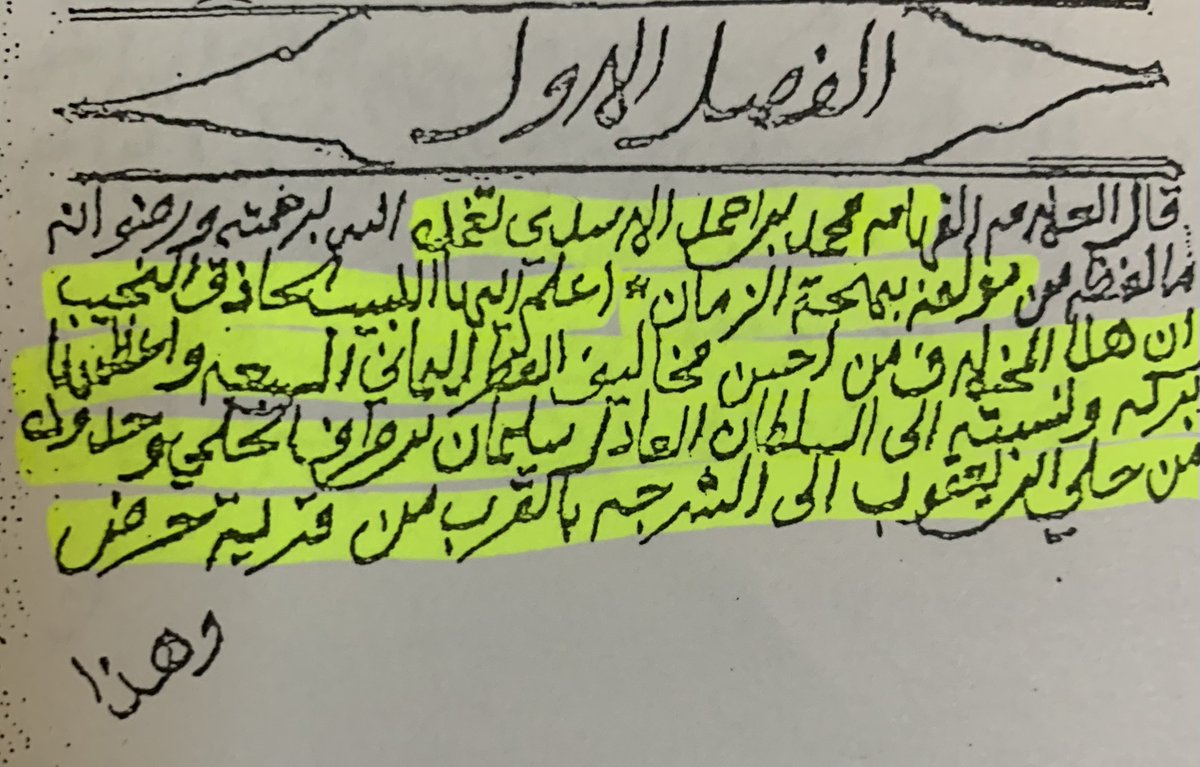 الفصل الاول
قال العلامه الفهامه محمد بن احمد الاسدي تغمده الله برحمته ورضوانه
ما لفظه من مؤلفه بملحة الزمان * اعلم ايها اللبيب الحاذق النجيب
ان هذا المخلاف من احسن مخاليف القطر اليماني السبعه واعظمها
بركه ونسبته الى السلطان العادل سليمان بن طرف الحكمي وحدوده
من حلي ابن يعقوب الى الشرجه بالقرب من قرية حرض
وهذا